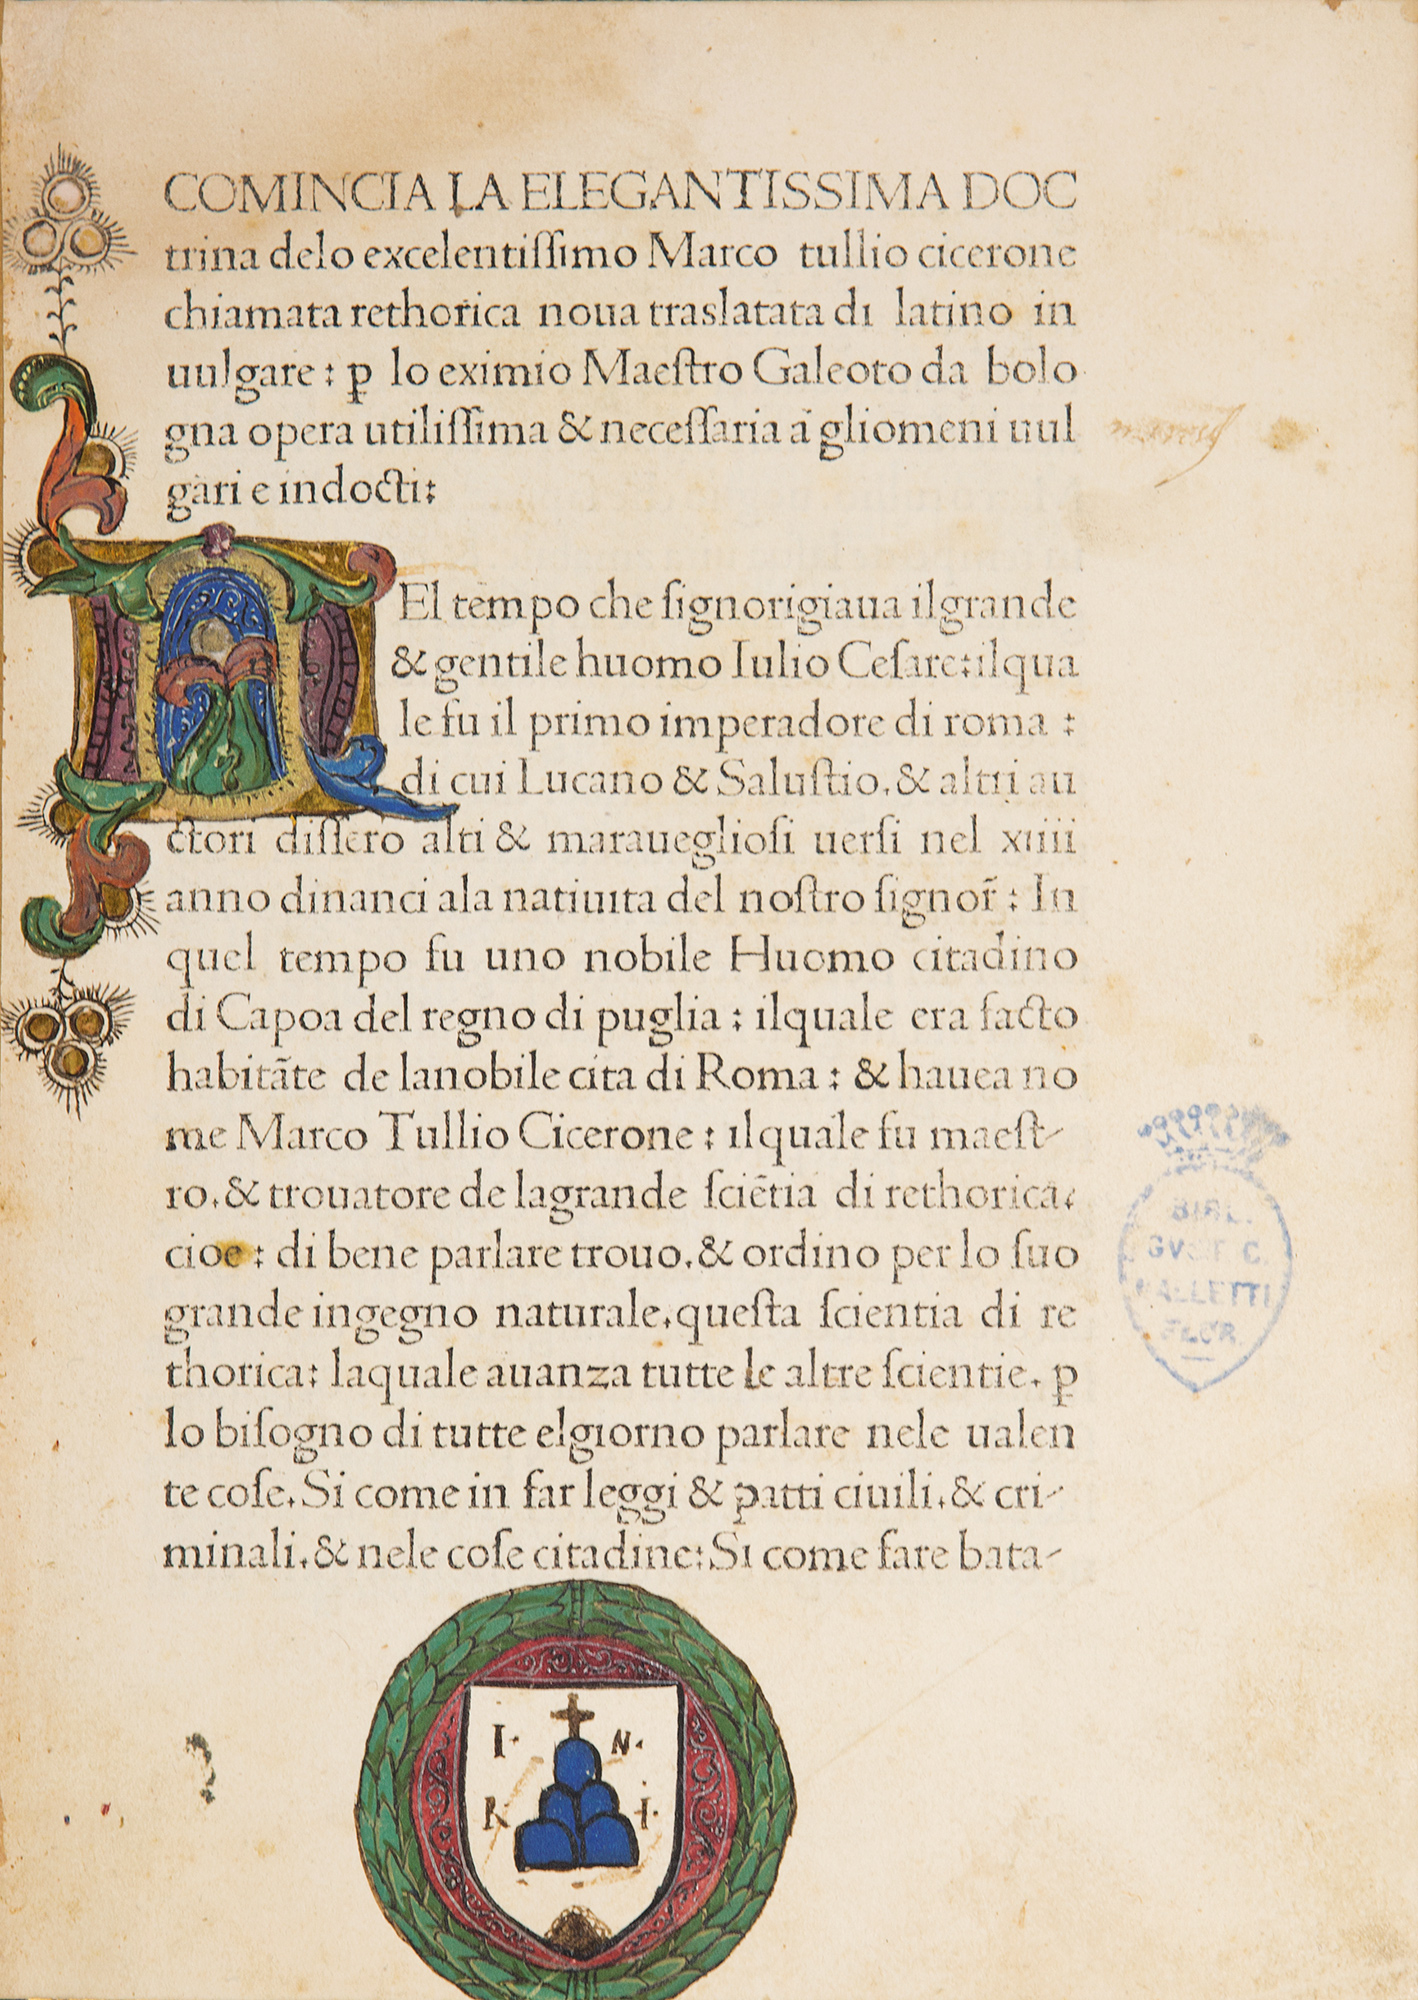 COMINCIA LA ELEGANTISSIMA DOC
trina delo excelentiſſimo Marco tullio cicerone
chiamata rethorica noua traslatata di latino in
uulgare : ꝑ lo eximio Maeſtro Galeoto da bolo
gna opera utiliſſima & neceſſaria a gliomeni uul
gari e indocti:
NEl tempo che ſignorigiaua ilgrande
& gentile huomo Iulio Ceſare:ilqua
le fu il primo imperadore di roma :
di cui Lucano & Saluſtio.& altri au
ctori diſſero alti & marauegliofi uerſi nel xiiii
anno dinanci ala natiuita del noſtro ſignor̃ : In
quel tempo fu uno nobile Huomo citadino
di Capoa del regno di puglia : ilquale era facto
habitãte de lanobile cita di Roma : & hauea no
me Marco Tullio Cicerone : ilquale fu maeſt-
ro.& trouatore de lagrande ſciẽtia di rethorica:
cioe : di bene parlare trouo.& ordino per lo ſuo
grande ingegno naturale.queſta ſcientia di re
thorica: laquale auanza tutte le altre ſcientie. ꝑ
lo biſogno di tutte elgiorno parlare nele ualen
te coſe.Si come in far leggi & patti ciuili.& cri-
minali.& nele coſe citadine:Si come fare bata-
BIBL.
GVST C.
GALLETTI
FLOR.
I· N·
R I·